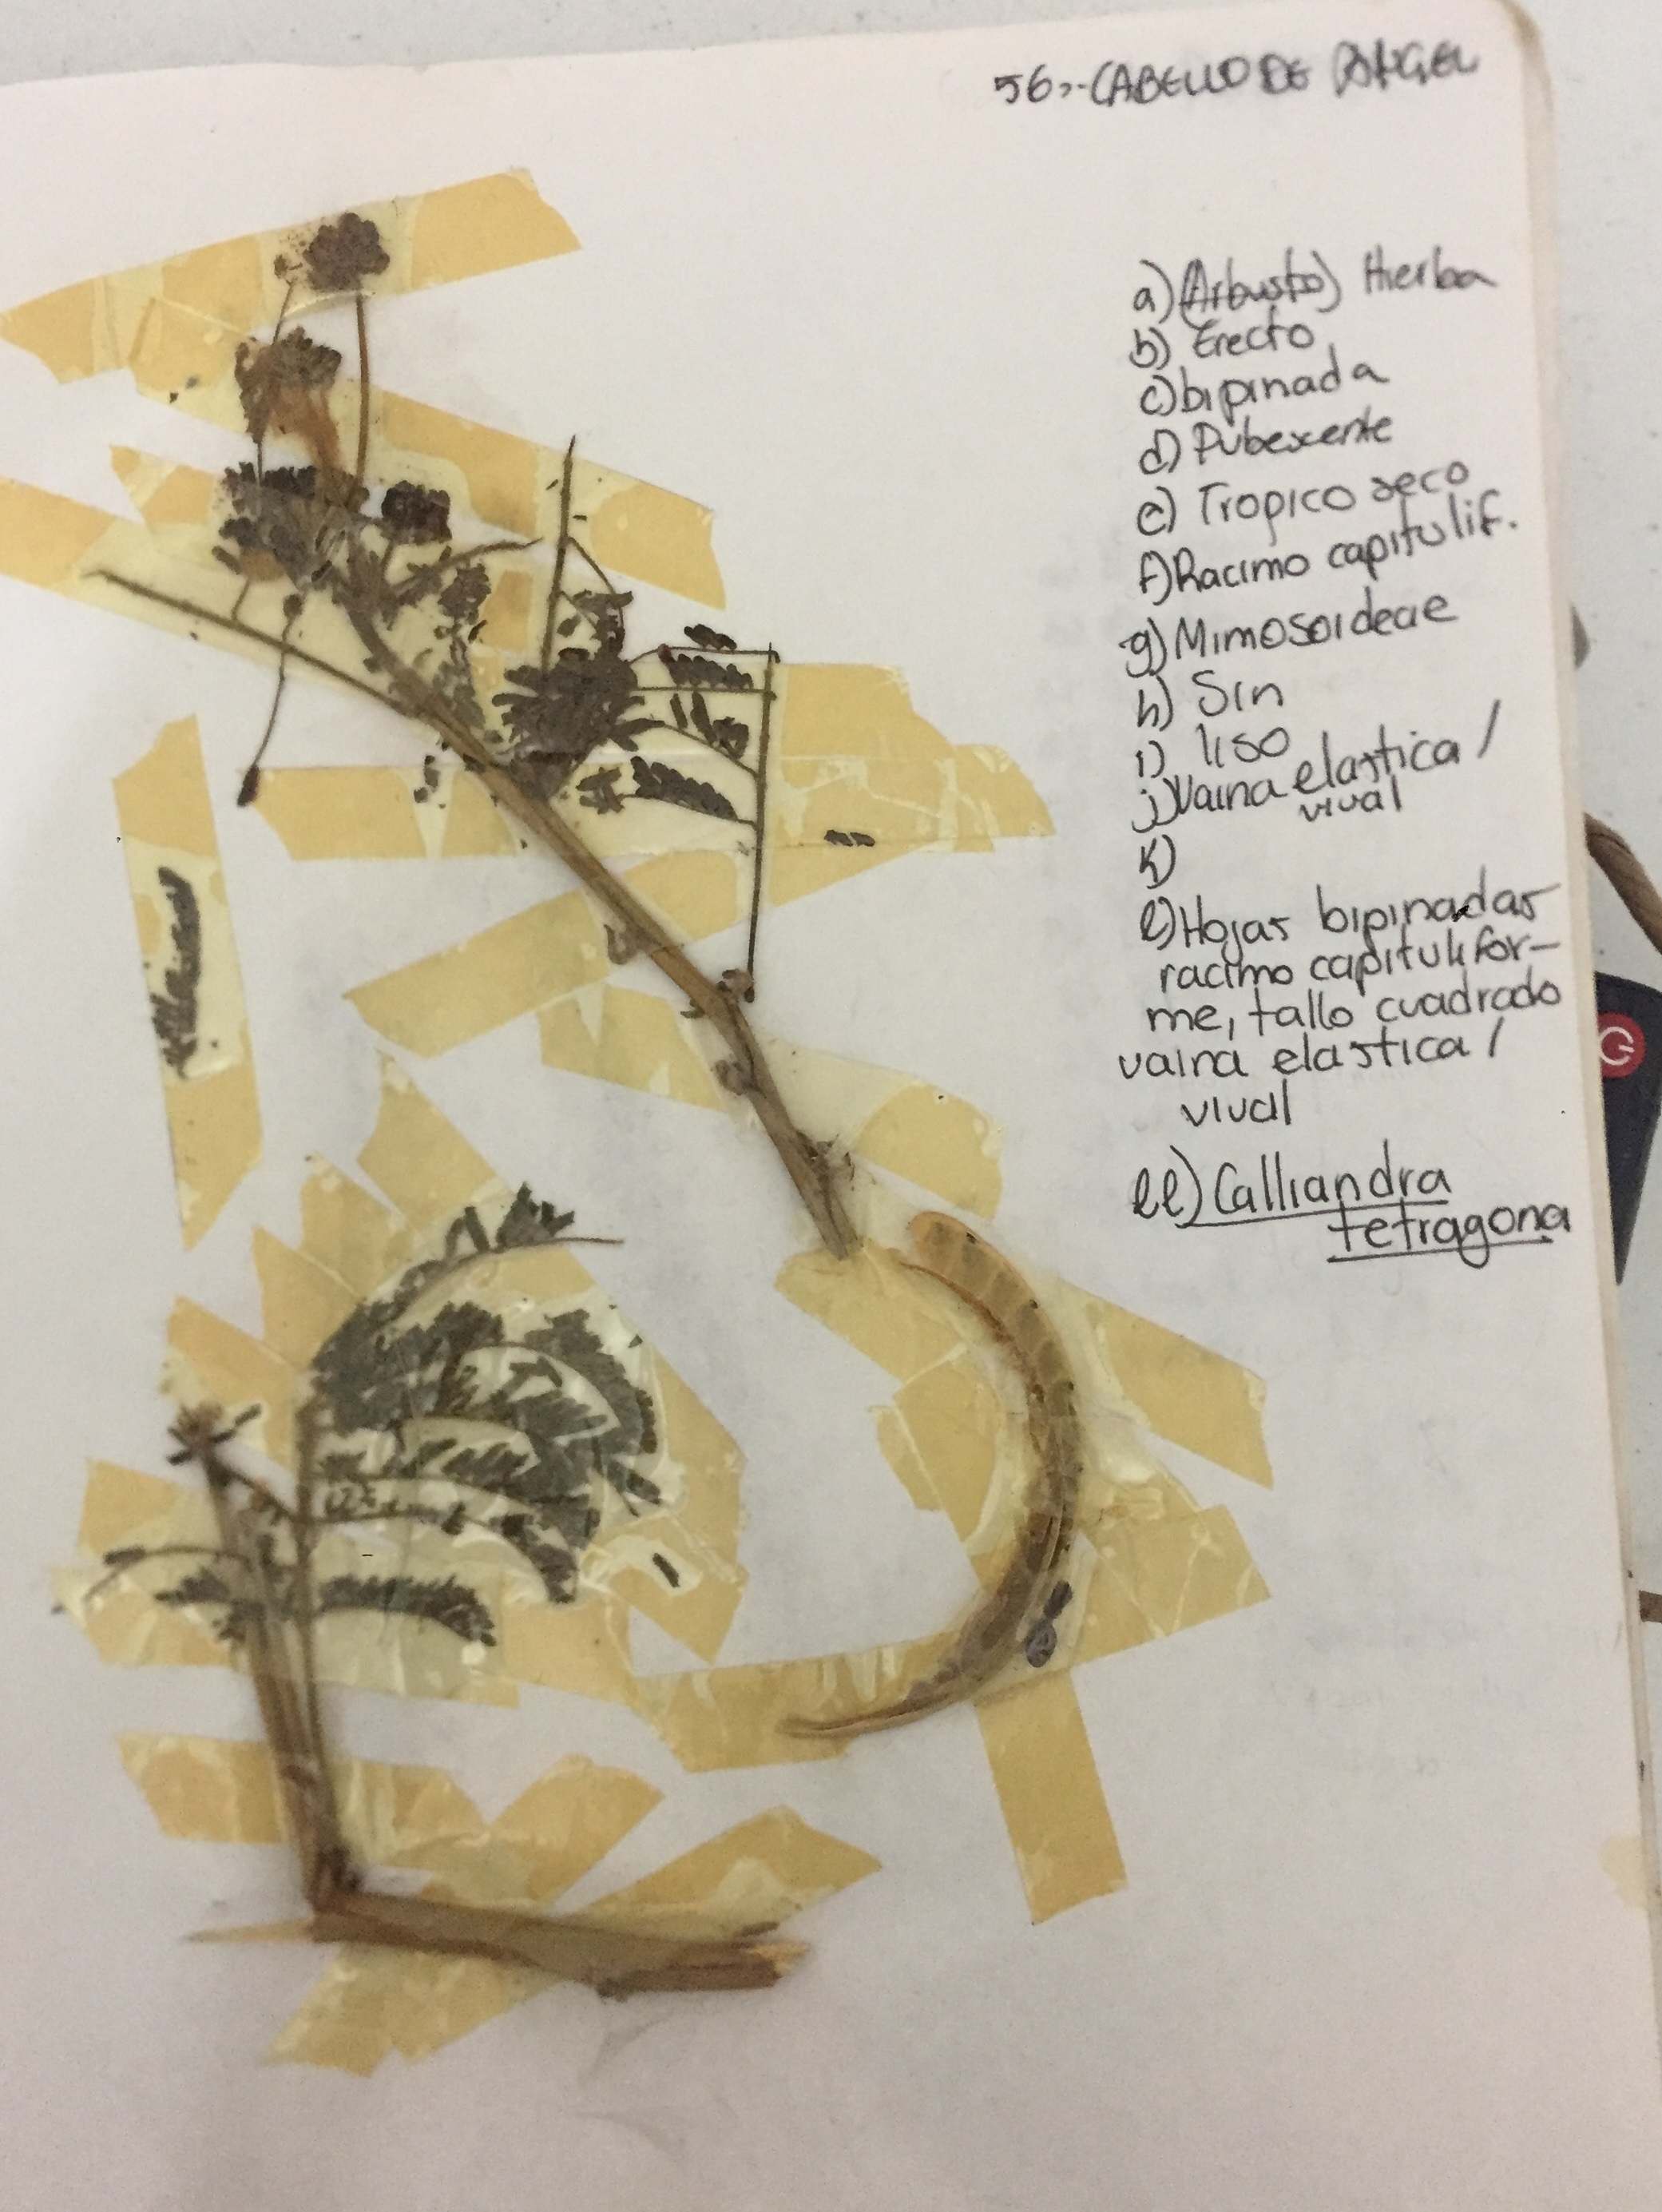 56.- CABELLO DE ANGEL
a) (Arbusto) Hierba
b) Erecto
c) bipinada
d) Pubescente
e) Tropico seco
f) Racimo capitulif.
g) Mimosoideae
h) Sin
i) liso
j) Vaina elastica /
vival
k)
l) Hojas bipinadas
racimo capitulifor-
me, tallo cuadrado
vaina elastica /
vival
ll) Calliandra
tetragona